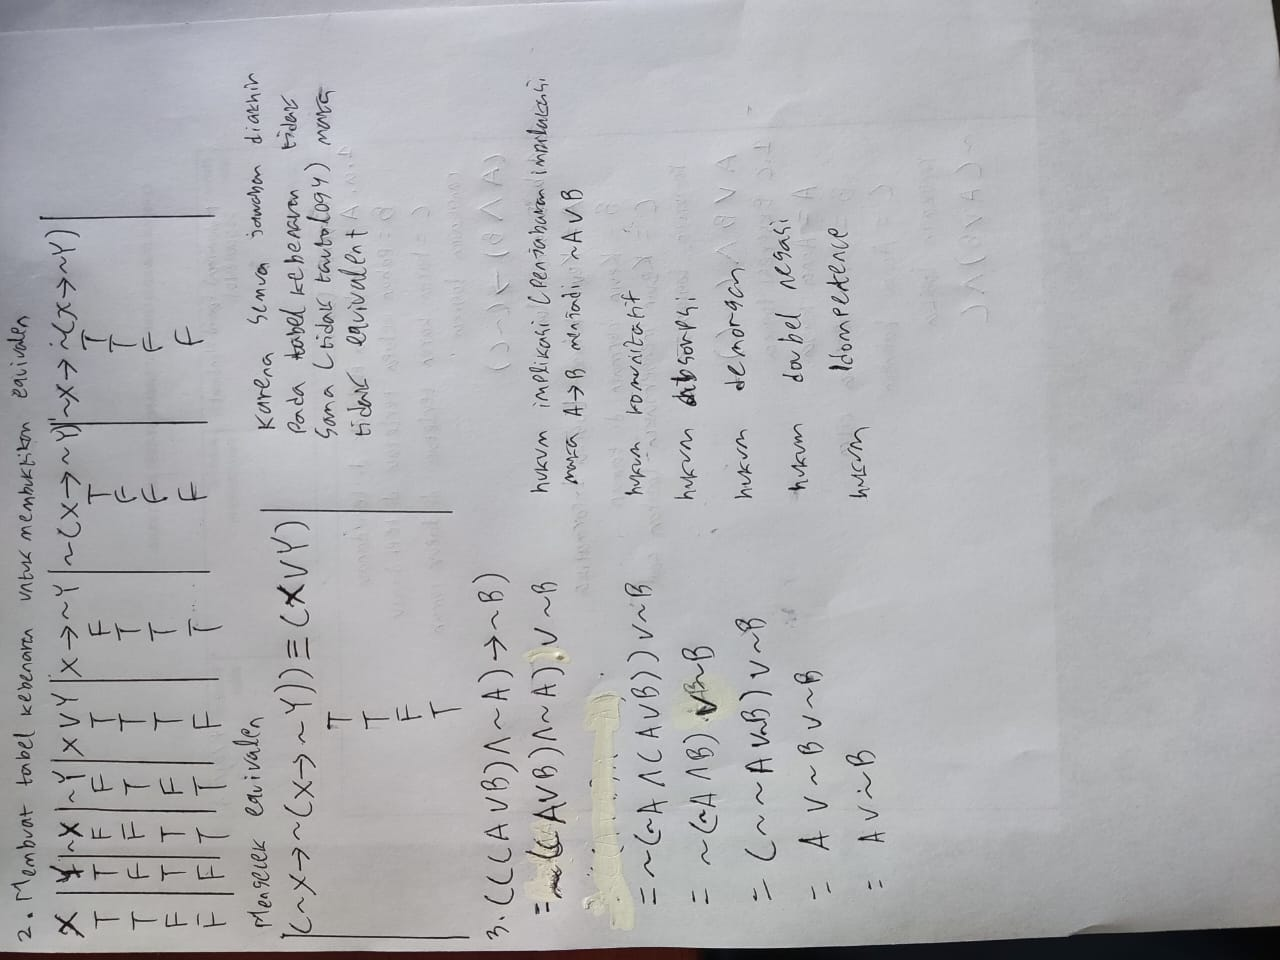 2. Membuat tabel kebenaran untuk membuktikan equivalen
X | Y | ~X | ~Y | X∨Y | X→~Y | ~(X→~Y) | ~X→~(X→~Y)
T | T | F | F | T | F | T | T
T | F | F | T | T | T | F | T
F | T | T | F | T | T | F | F
F | F | T | T | F | T | F | F
Mengecek equivalen
(~X→~(X→~Y)) ≡ (X∨Y)
T
T
F
T
Karena semua jawaban diakhir
Pada tabel kebenaran tidak
sama (tidak tautology) maka
tidak equivalent
3. (((A∨B)∧~A)→~B)
= ~((A∨B)∧~A))∨~B hukum implikasi (Penjabaran implikasi
maka A→B menjadi ~A∨B
= ~(~A∧(A∨B))∨~B hukum komunitatif
= ~(~A∧B)∨~B hukum absorpsi
= (~~A∨~B)∨~B hukum demorgan
= A∨~B∨~B hukum doubel negasi
= A∨~B hukum Idompetence